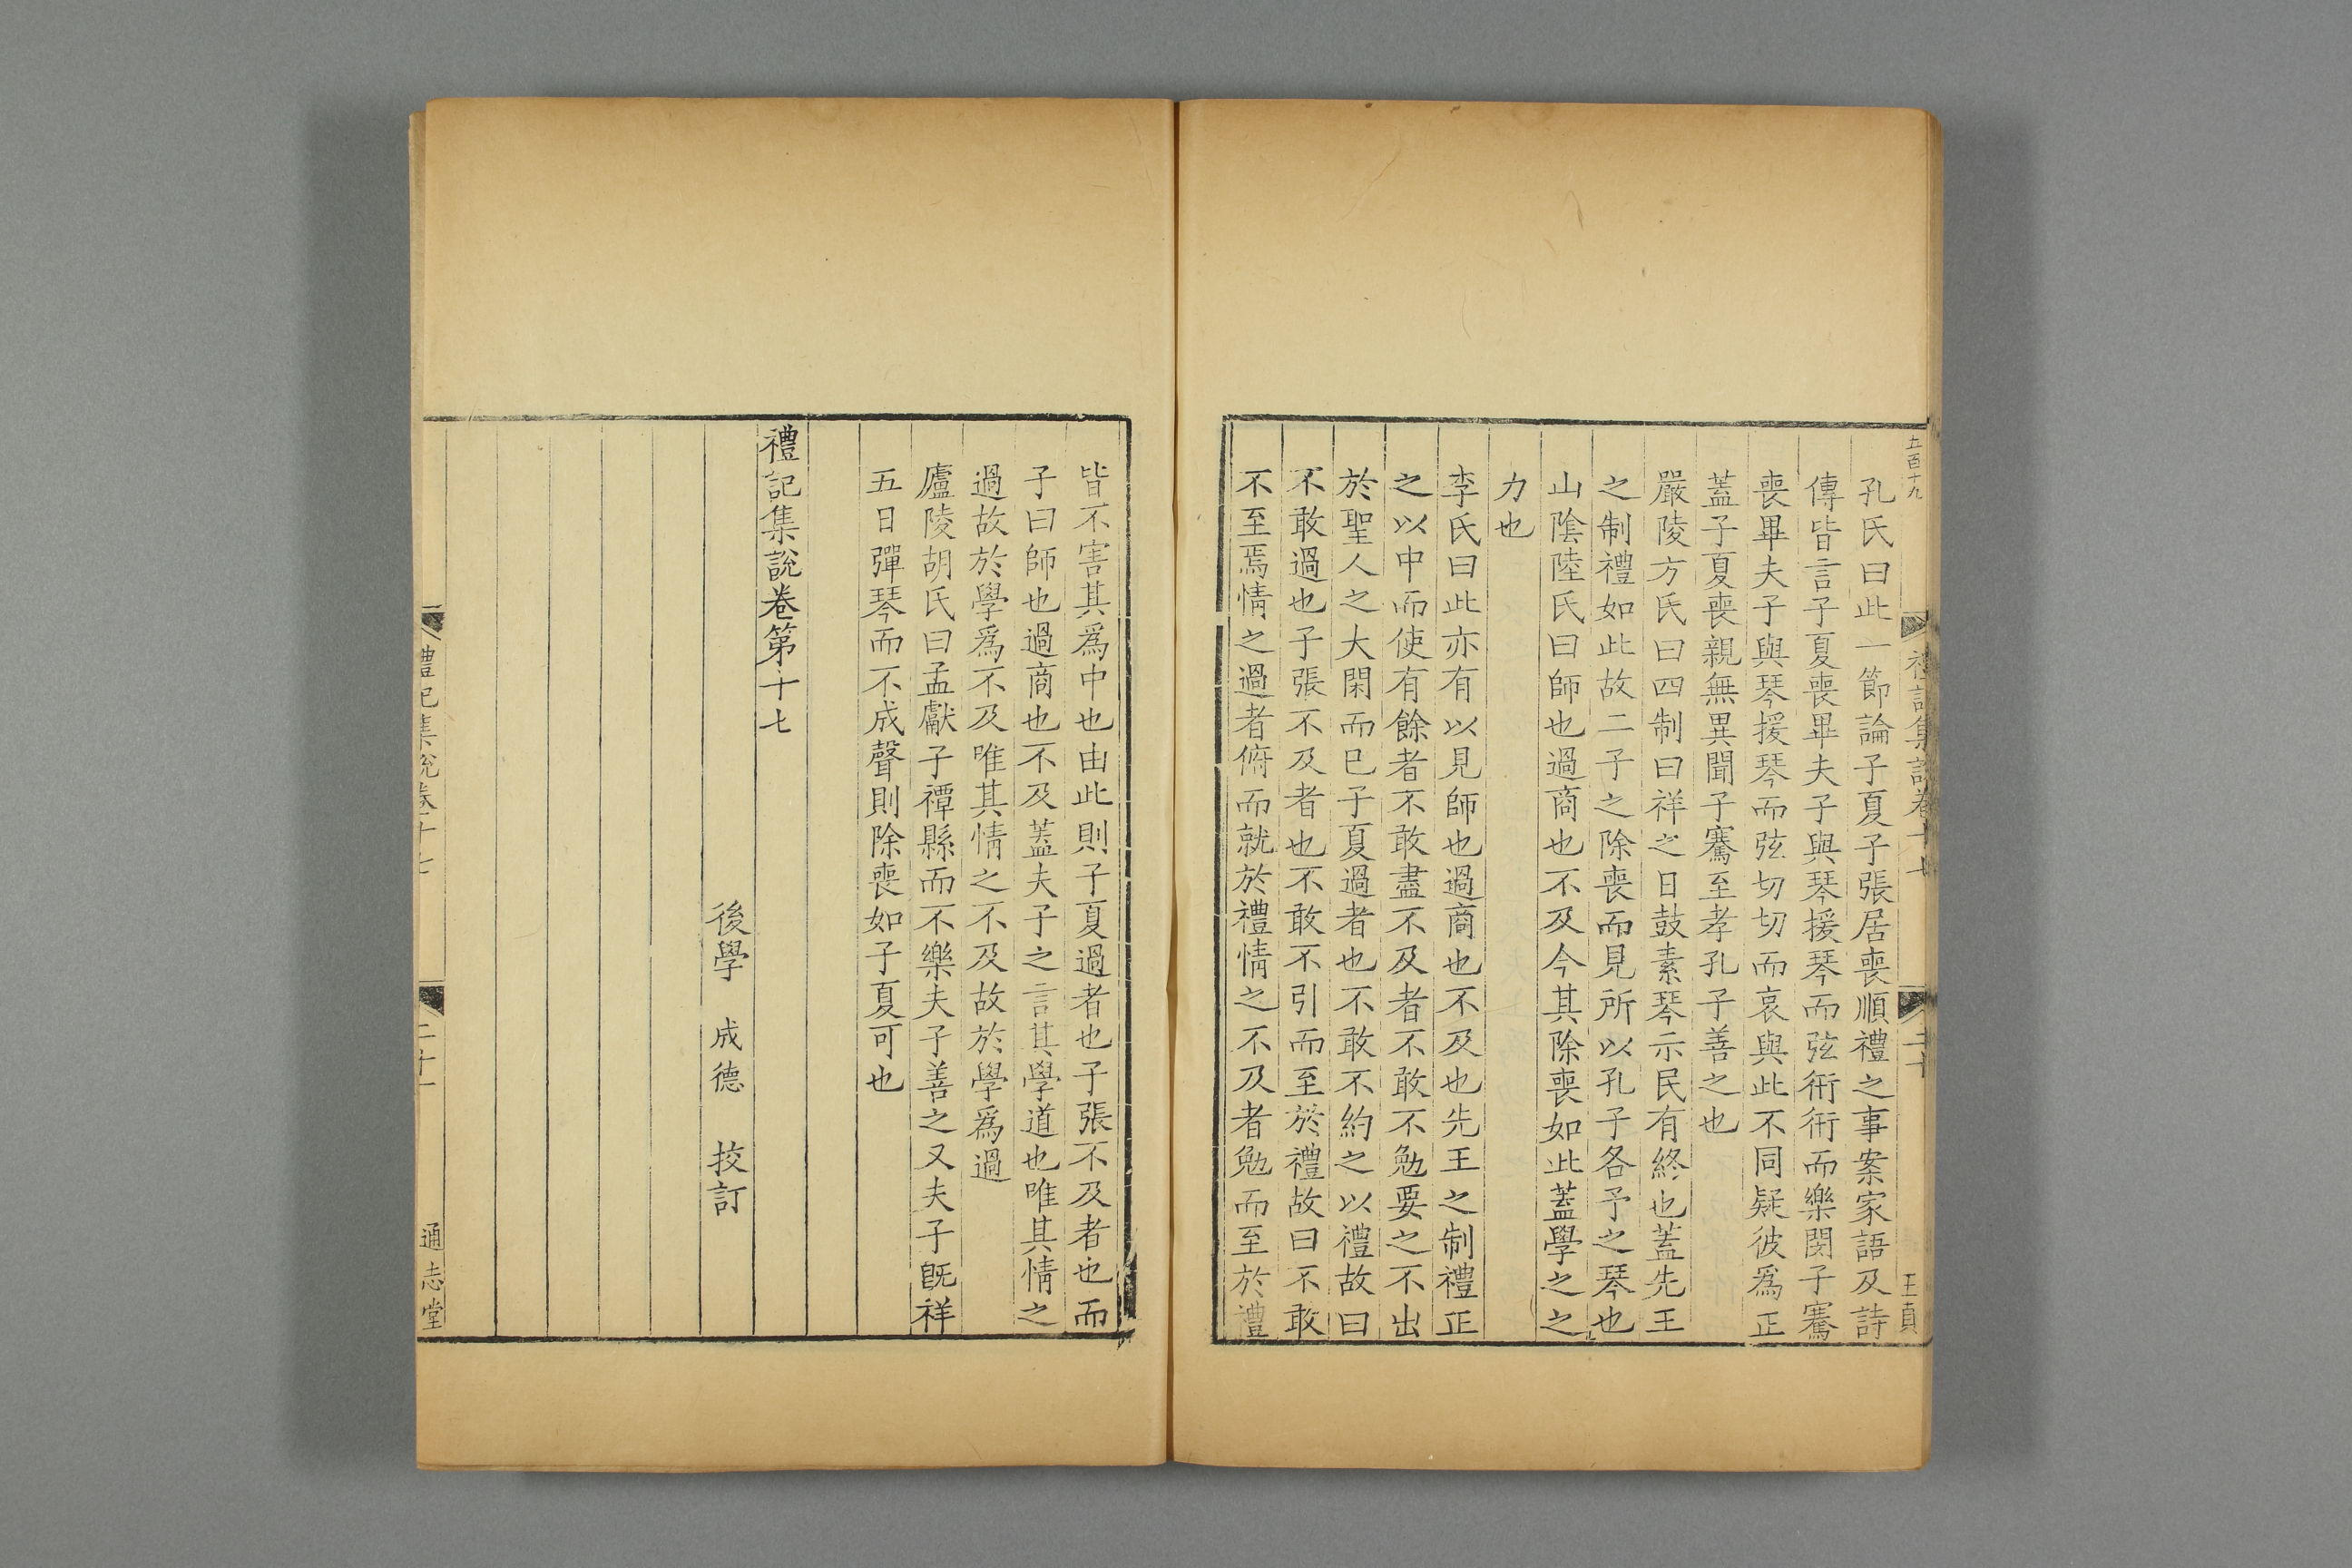 五百十九
禮記集說卷十七
二十
王貞
孔氏曰此一節論子夏子張居喪順禮之事案家語及詩
傳皆言子夏喪畢夫子與琴援琴而弦衎衎而樂閔子騫
喪畢夫子與琴援琴而弦切切而哀與此不同疑彼爲正
蓋子夏喪親無異聞子騫至孝孔子善之也
嚴陵方氏曰四制曰祥之日鼓素琴示民有終也蓋先王
之制禮如此故二子之除喪而見所以孔子各予之琴也
山陰陸氏曰師也過商也不及今其除喪如此蓋學之之
力也
李氏曰此亦有以見師也過商也不及也先王之制禮正
之以中而使有餘者不敢盡不及者不敢不勉要之不出
於聖人之大閑而已子夏過者也不敢不約之以禮故曰
不敢過也子張不及者也不敢不引而至於禮故曰不敢
不至焉情之過者俯而就於禮情之不及者勉而至於禮
皆不害其爲中也由此則子夏過者也子張不及者也而
子曰師也過商也不及蓋夫子之言其學道也唯其情之
過故於學爲不及唯其情之不及故於學爲過
廬陵胡氏曰孟獻子禫縣而不樂夫子善之又夫子旣祥
五日彈琴而不成聲則除喪如子夏可也
禮記集說卷第十七
後學 成德 挍訂
禮記集說卷十七
二十一
通志堂